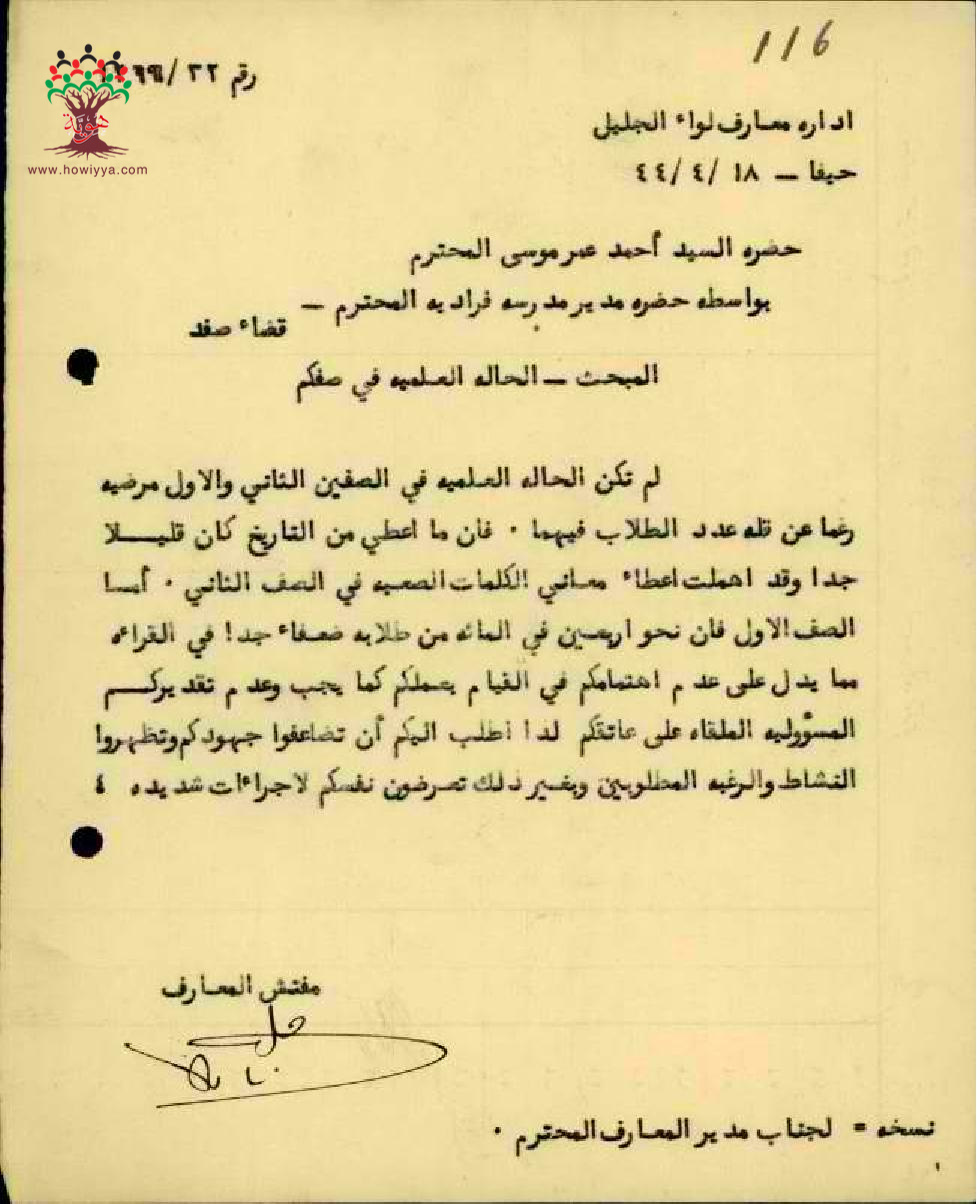 116
رقم ٢٢/
هوية
www.howiyya.com
اداره معارف لواء الجليل
حيفا – ١٨/ ٤/ ٤٤
حضره السيد أحمد عمر موسى المحترم
بواسطه حضره مدير مدرسه فراديه المحترم –
قضاء صفد
المبحث – الحاله العلميه في صفكم
لم تكن الحاله العلميه في الصفين الثاني والاول مرضيه
رغما عن قله عدد الطلاب فيهما ٠ فان ما اعطي من التاريخ كان قليـــلا
جدا وقد اهملت اعطاء معاني الكلمات الصعبه في الصف الثاني ٠ أمـا
الصف الاول فان نحو اربعين في المائه من طلابه ضعفاء جدا في القراءه
مما يدل على عدم اهتمامكم في القيام بعملكم كما يجب وعدم تقديركـــم
المسؤوليه الملقاه على عاتقكم لذا اطلب اليكم أن تضاعفوا جهودكم وتظهروا
النشاط والرغبه المطلوبين وبغير ذلك تعرضون نفسكم لاجراءات شديده ٤
مفتش المعارف
نسخه = لجناب مدير المعارف المحترم ٠